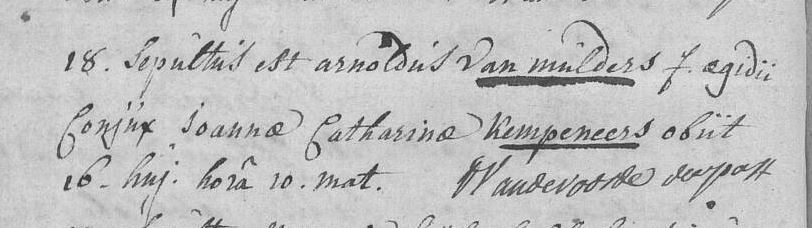 18. Sepultus est arnoldus Van mülders f. ægidii
Conjux Joannæ Catharinæ Kempeneers obiit
16. huj. horâ 10. mat. Vandevoorde